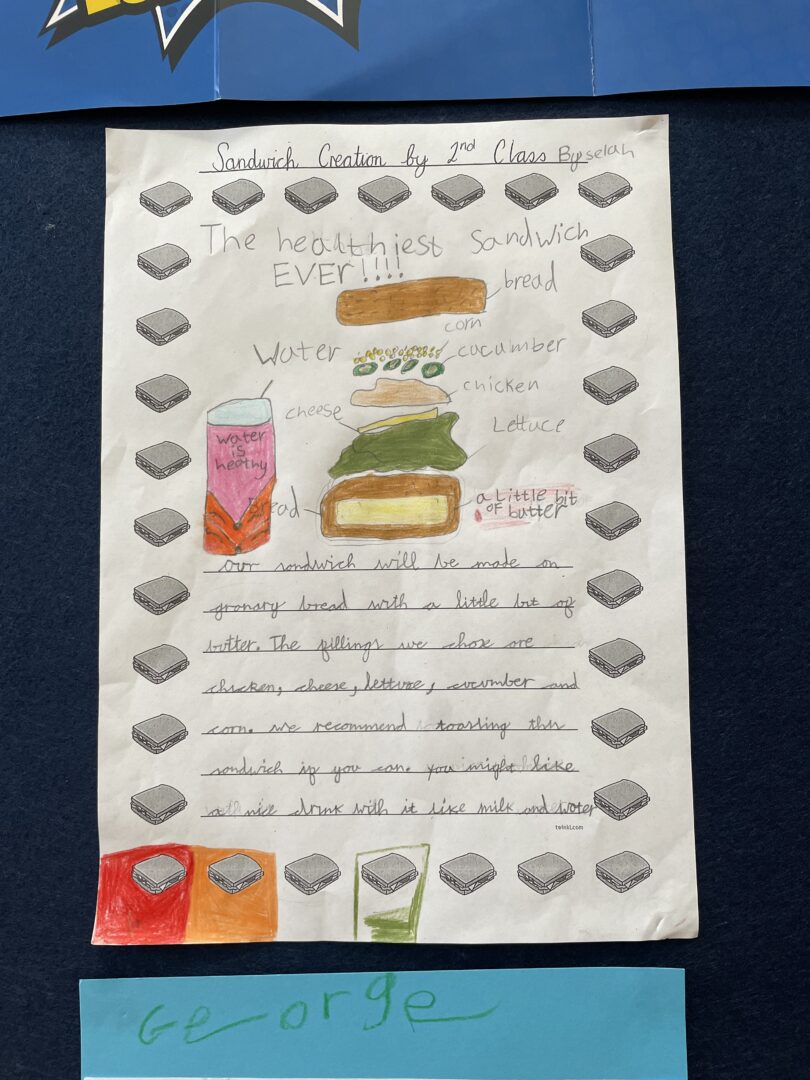 Sandwich Creation by 2nd Class By selah
The healthiest Sandwich
EVEr!!!!
bread
corn
Water
cucumber
chicken
cheese
Lettuce
water
is
heathy
Bread
a Little bit
oF butter
Our sandwich will be made on
granary bread with a little bit of
butter. The fillings we chose are
chicken, cheese, lettuse, cucumber and
corn. we recommend toasting this
sandwich if you can. you might like
a nice drink with it like milk and water
twinkl.com
George